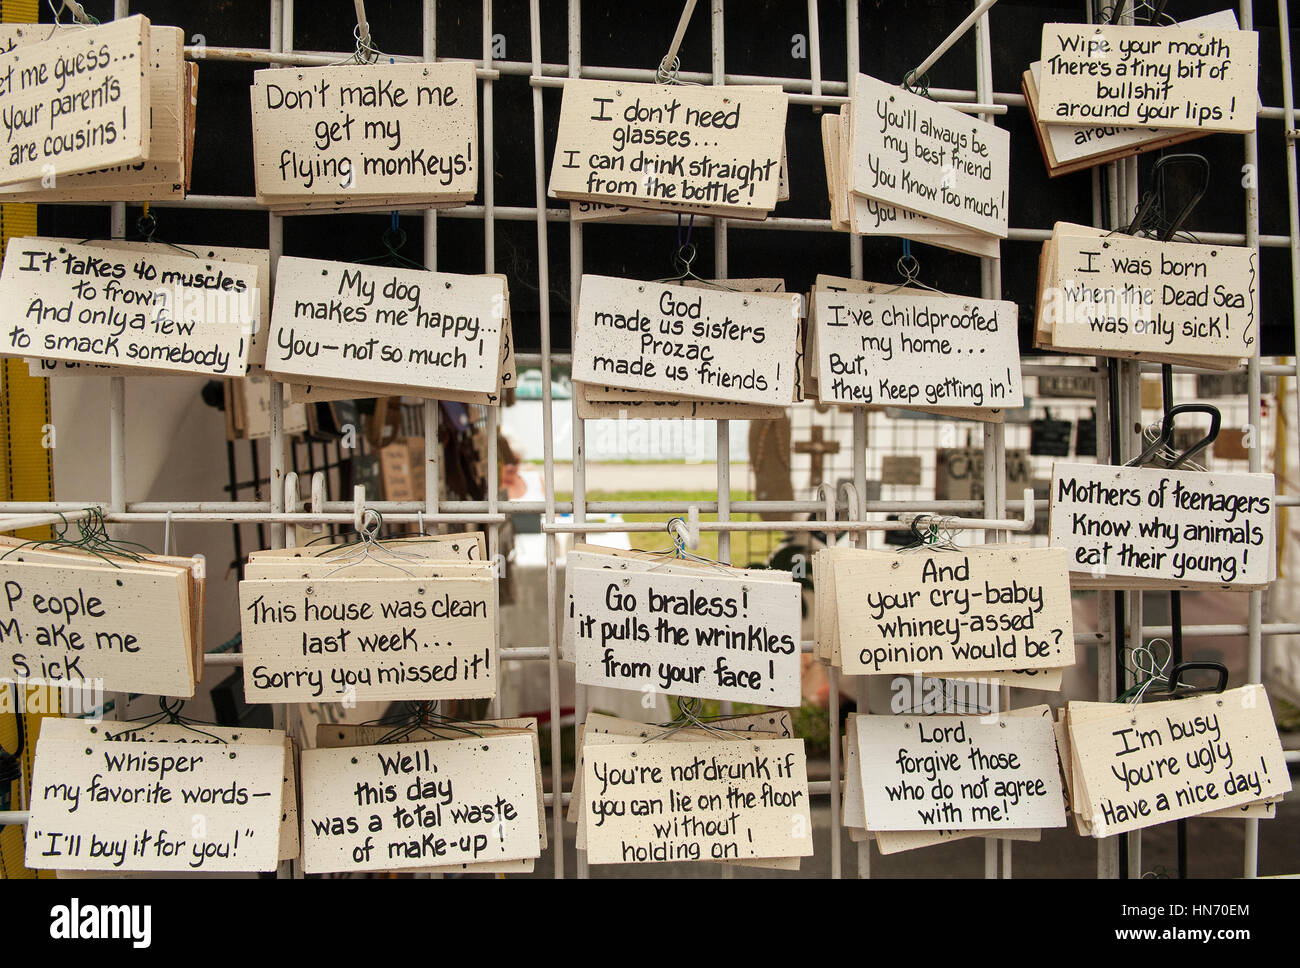 et me guess...
Your parents
are cousins!
Don't make me
get my
flying monkeys!
I don't need
glasses...
I can drink straight
from the bottle!
You'll always be
my best friend
You know too much!
Wipe your mouth
There's a tiny bit of
bullshit
around your lips!
It takes 40 muscles
to frown
And only a few
to smack somebody!
My dog
makes me happy...
You—not so much!
God
made us sisters
Prozac
made us friends!
I've childproofed
my home...
But,
they keep getting in!
I was born
when the Dead Sea
was only sick!
Mothers of teenagers
Know why animals
eat their young!
People
Make me
Sick
This house was clean
last week...
Sorry you missed it!
Go braless!
it pulls the wrinkles
from your face!
And
your cry-baby
whiney-assed
opinion would be?
Whisper
my favorite words—
"I'll buy it for you!"
Well,
this day
was a total waste
of make-up!
You're not drunk if
you can lie on the floor
without
holding on!
Lord,
forgive those
who do not agree
with me!
I'm busy
You're ugly
Have a nice day!
alamy stock photo
HN70EM
www.alamy.com